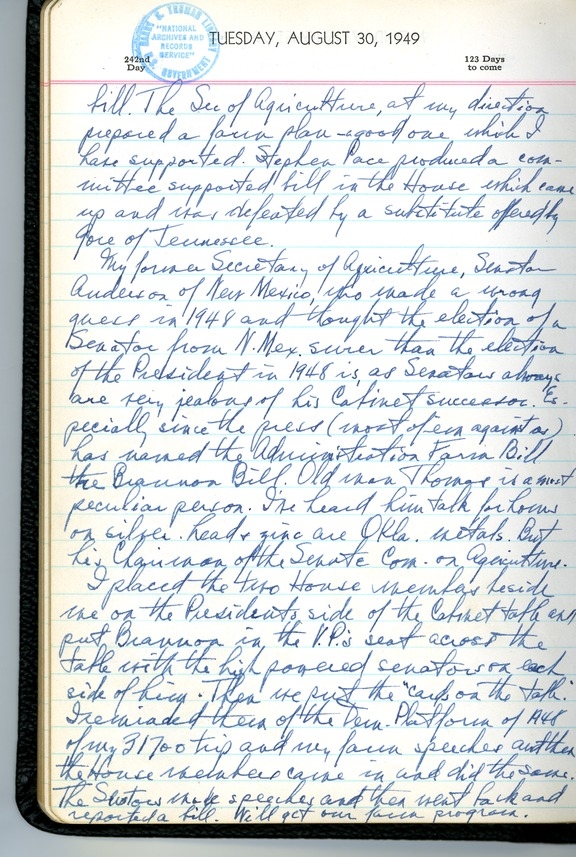 HARRY S. TRUMAN LIBRARY
"NATIONAL
ARCHIVES AND
RECORDS
SERVICE"
GOVERNMENT
TUESDAY, AUGUST 30, 1949
242nd
Day
123 Days
to come
bill. The Sec of Agriculture, at my direction
prepared a farm plan - a good one which I
have supported. Stephen Pace produced a com-
mittee supported bill in the House which came
up and was defeated by a substitute offered by
Gore of Tennessee.
My former Secretary of Agriculture, Senator
Anderson of New Mexico, who made a wrong
guess in 1948 and thought the election of a
Senator from N. Mex. surer than the election
of the President in 1948 is, as Senators always
are very jealous of his Cabinet successor. Es-
pecially since the press (most of em against us)
has named the Administration Farm Bill
the Brannon Bill. Old man Thomas is a most
peculiar person. I've heard him talk for hours
on silver. Lead & zinc are Okla. metals. But
he's Chairman of the Senate Com. on Agriculture.
I placed the two House members beside
me on the President's side of the Cabinet table and
put Brannon in the V.P.'s seat across the
table with the high powered senators on each
side of him. Then we put the "cards on the table."
I reminded them of the Dem. Platform of 1948
of my 31700 trip and my farm speeches and then
the House members came in and did the same.
The Senators make speeches and then went back and
reported a bill. Will get our farm program.